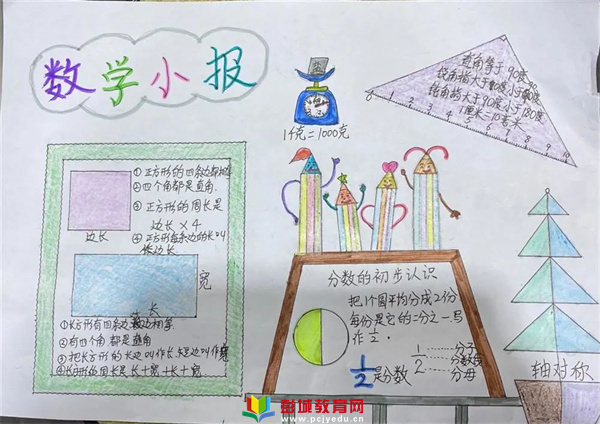 数学小报
盐
1千克=1000克
直角等于90度
锐角指大于0度小于90度
钝角指大于90度小于180度
1厘米=10毫米
0 1 2 3 4 5 6 7 8 9 10
①正方形的四条边都相
②四个角都是直角.
③正方形的周长是
边长×4
④正方形每条边的长叫
作边长
边长
宽
长
①长方形有四条边
②有四个角都是直角
③把长方形的长边叫作长,短边叫作宽
④长方形的周长是长+宽+长+宽
分数的初步认识
把1个圆平均分成2份
每份是它的二分之一写
作1/2.
1/2是分数
1/2
分子
分数线
分母
轴对称
彭城教育网
www.pcjyedu.cn